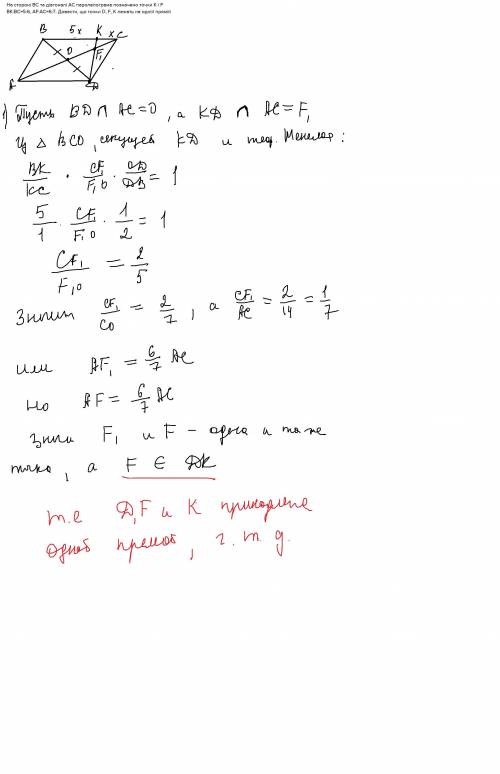 На стороні BC та діагоналі AC паралелограма позначено точки K і F
BK:BC=5:6, AF:AC=6:7. Довести, що точки D, F, K лежать на одній прямій
B 5x K x C
O F₁
A D
1) Пусть BD ∩ AC = O, а KD ∩ AC = F₁
Из △ BCO, секущей KD и теор. Менелая:
BK/KC · CF₁/F₁O · OD/DB = 1
5/1 · CF₁/F₁O · 1/2 = 1
CF₁/F₁O = 2/5
Значит CF₁/CO = 2/7, а CF₁/AC = 2/14 = 1/7
или AF₁ = 6/7 AC
Но AF = 6/7 AC
Знач F₁ и F - одна и та же
точка, а F ∈ DK
т.е D,F и K принадлежат
одной прямой, ч.т.д.